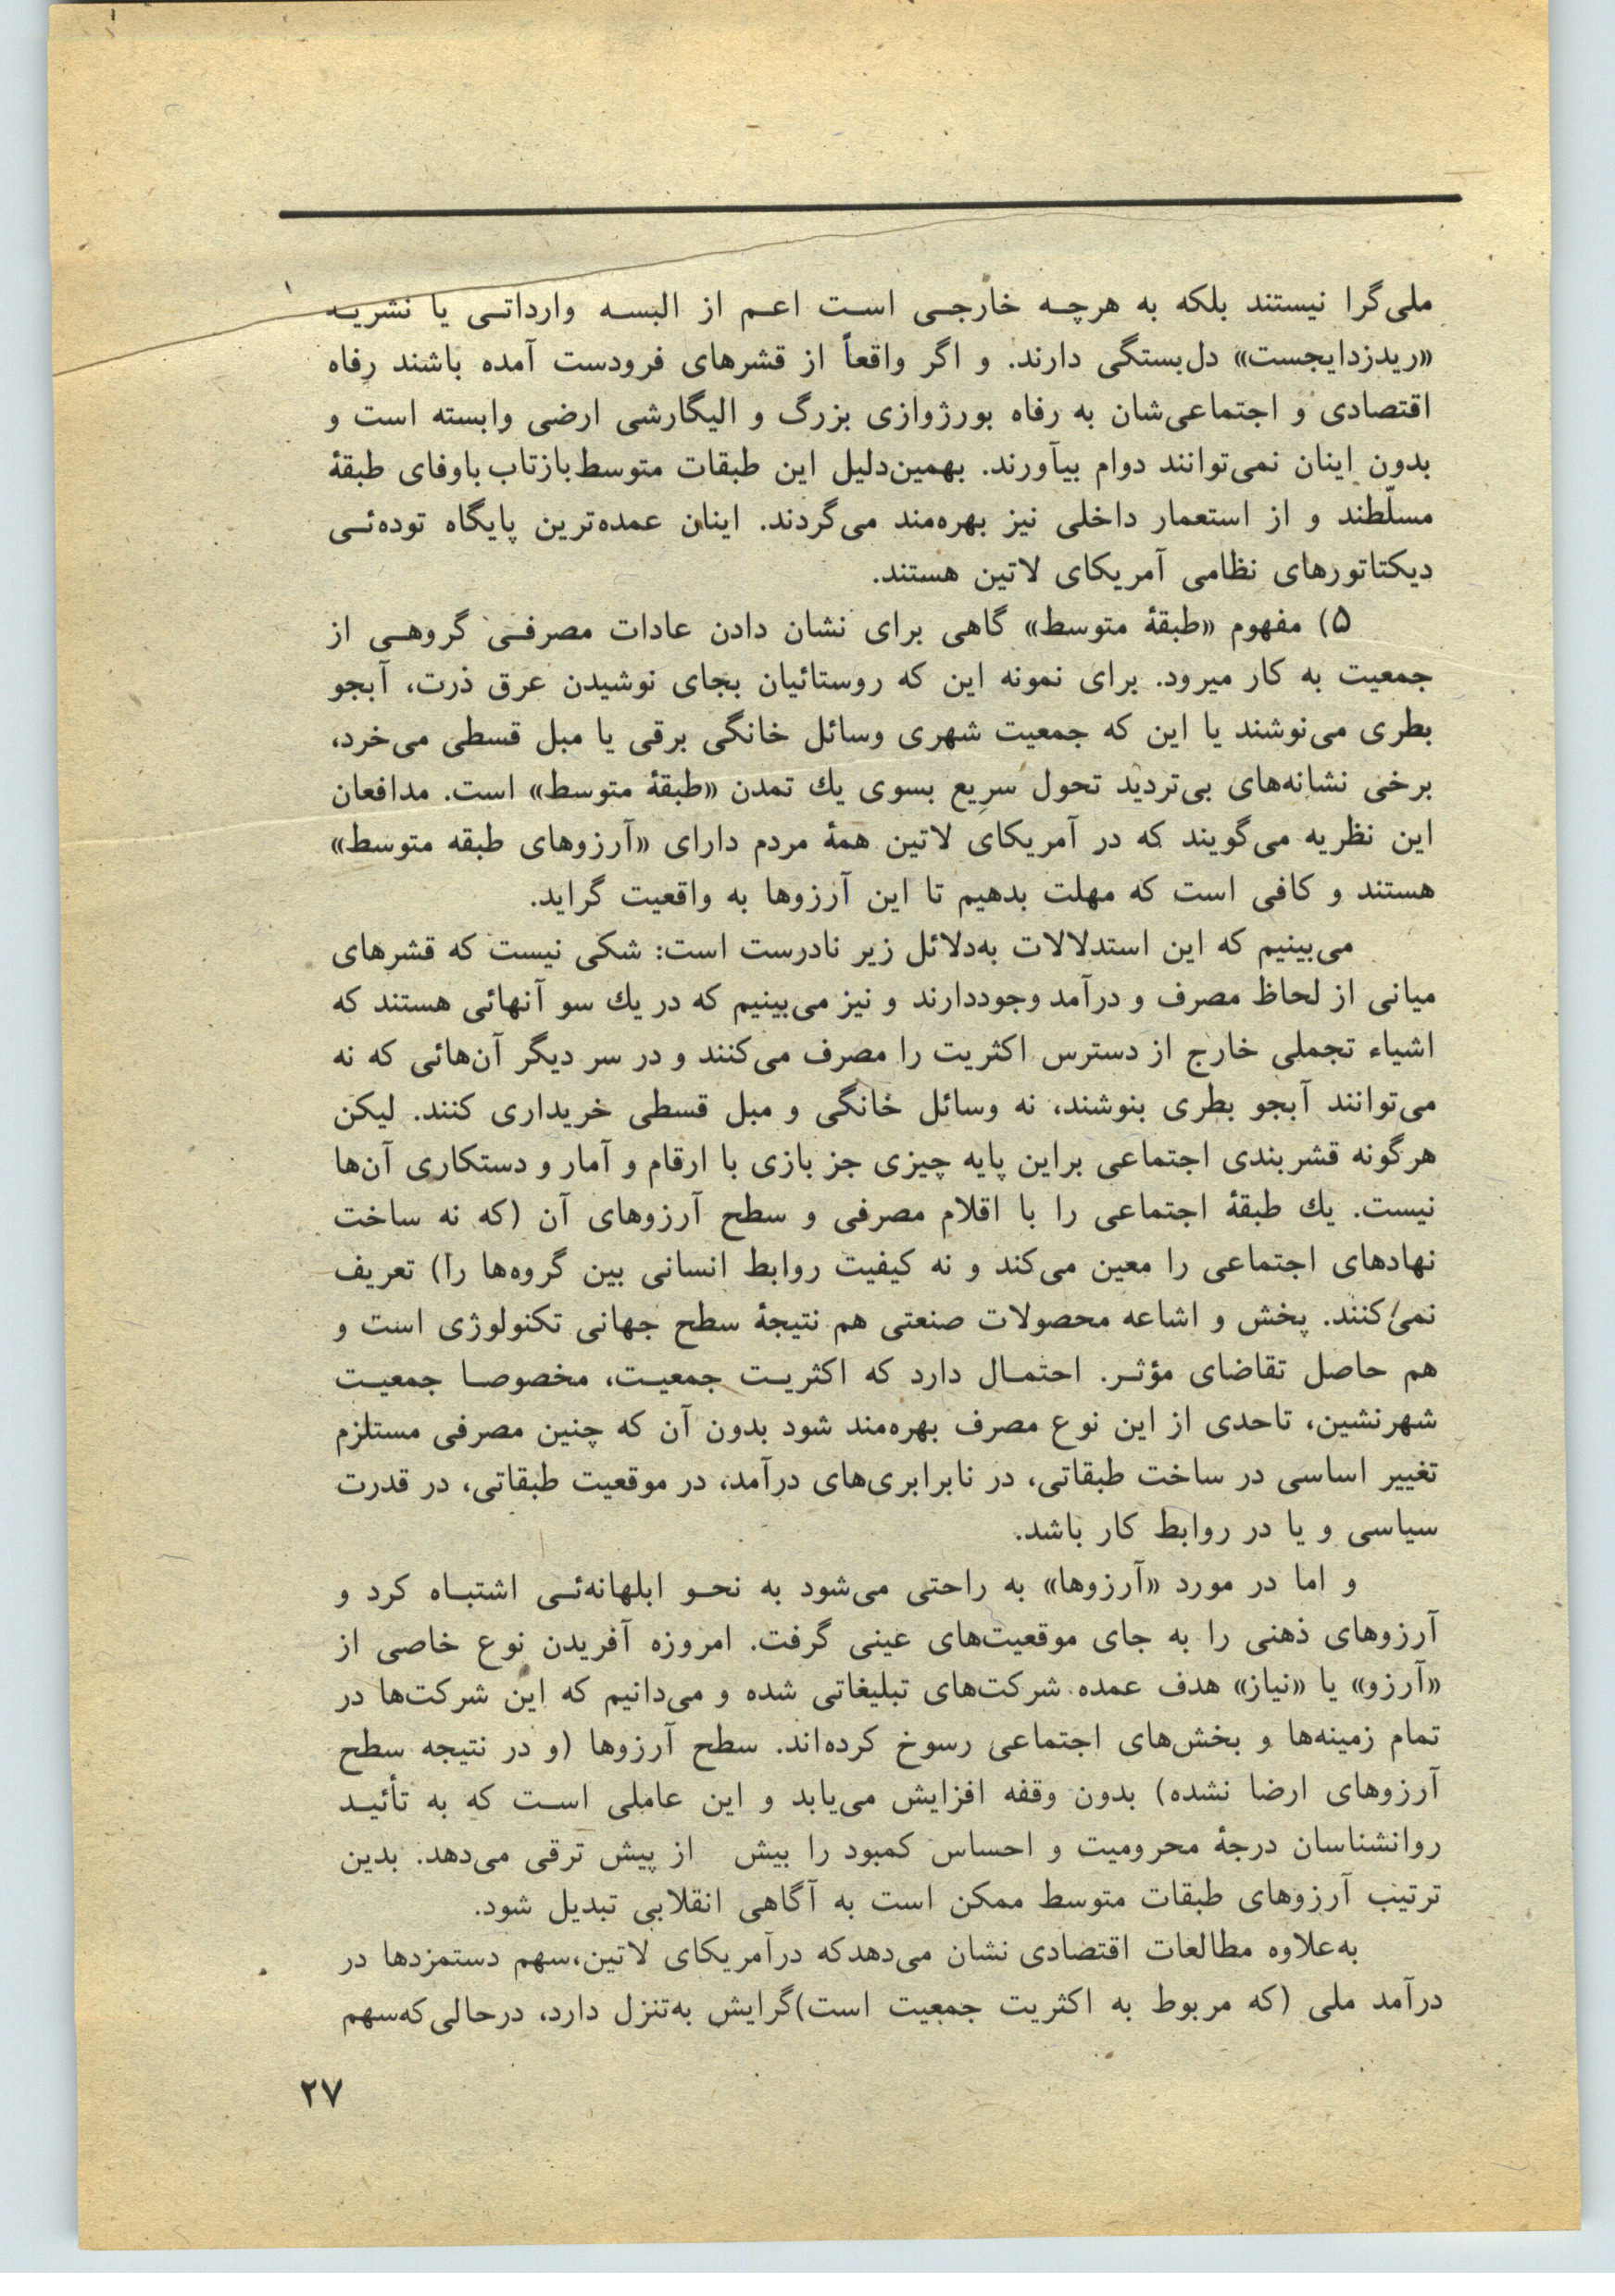 ملی‌گرا نیستند بلکه به هرچه خارجی است اعم از البسه وارداتی یا نشریه
«ریدزدایجست» دل‌بستگی دارند. و اگر واقعاً از قشرهای فرودست آمده باشند رفاه
اقتصادی و اجتماعی‌شان به رفاه بورژوازی بزرگ و الیگارشی ارضی وابسته است و
بدون اینان نمی‌توانند دوام بیآورند. بهمین‌دلیل این طبقات متوسط بازتاب باوفای طبقۀ
مسلّطند و از استعمار داخلی نیز بهره‌مند می‌گردند. اینان عمده‌ترین پایگاه توده‌ئی
دیکتاتورهای نظامی آمریکای لاتین هستند.
۵) مفهوم «طبقۀ متوسط» گاهی برای نشان دادن عادات مصرفی گروهی از
جمعیت به کار میرود. برای نمونه این که روستائیان بجای نوشیدن عرق ذرت، آبجو
بطری می‌نوشند یا این که جمعیت شهری وسائل خانگی برقی یا مبل قسطی می‌خرد،
برخی نشانه‌های بی‌تردید تحول سریع بسوی یك تمدن «طبقۀ متوسط» است. مدافعان
این نظریه می‌گویند که در آمریکای لاتین همۀ مردم دارای «آرزوهای طبقه متوسط»
هستند و کافی است که مهلت بدهیم تا این آرزوها به واقعیت گراید.
می‌بینیم که این استدلالات به‌دلائل زیر نادرست است: شکی نیست که قشرهای
میانی از لحاظ مصرف و درآمد وجوددارند و نیز می‌بینیم که در یك سو آنهائی هستند که
اشیاء تجملی خارج از دسترس اکثریت را مصرف می‌کنند و در سر دیگر آن‌هائی که نه
می‌توانند آبجو بطری بنوشند، نه وسائل خانگی و مبل قسطی خریداری کنند. لیکن
هرگونه قشربندی اجتماعی براین پایه چیزی جز بازی با ارقام و آمار و دستکاری آن‌ها
نیست. یك طبقۀ اجتماعی را با اقلام مصرفی و سطح آرزوهای آن (که نه ساخت
نهادهای اجتماعی را معین می‌کند و نه کیفیت روابط انسانی بین گروه‌ها را) تعریف
نمی‌کنند. پخش و اشاعه محصولات صنعتی هم نتیجۀ سطح جهانی تکنولوژی است و
هم حاصل تقاضای مؤثر. احتمال دارد که اکثریت جمعیت، مخصوصا جمعیت
شهرنشین، تاحدی از این نوع مصرف بهره‌مند شود بدون آن که چنین مصرفی مستلزم
تغییر اساسی در ساخت طبقاتی، در نابرابری‌های درآمد، در موقعیت طبقاتی، در قدرت
سیاسی و یا در روابط کار باشد.
و اما در مورد «آرزوها» به راحتی می‌شود به نحو ابلهانه‌ئی اشتباه کرد و
آرزوهای ذهنی را به جای موقعیت‌های عینی گرفت. امروزه آفریدن نوع خاصی از
«آرزو» یا «نیاز» هدف عمده شرکت‌های تبلیغاتی شده و می‌دانیم که این شرکت‌ها در
تمام زمینه‌ها و بخش‌های اجتماعی رسوخ کرده‌اند. سطح آرزوها (و در نتیجه سطح
آرزوهای ارضا نشده) بدون وقفه افزایش می‌یابد و این عاملی است که به تأئید
روانشناسان درجۀ محرومیت و احساس کمبود را بیش از پیش ترقی می‌دهد. بدین
ترتیب آرزوهای طبقات متوسط ممکن است به آگاهی انقلابی تبدیل شود.
به‌علاوه مطالعات اقتصادی نشان می‌دهدکه درآمریکای لاتین،سهم دستمزدها در
درآمد ملی (که مربوط به اکثریت جمعیت است)گرایش به‌تنزل دارد، درحالی‌که‌سهم
۲۷